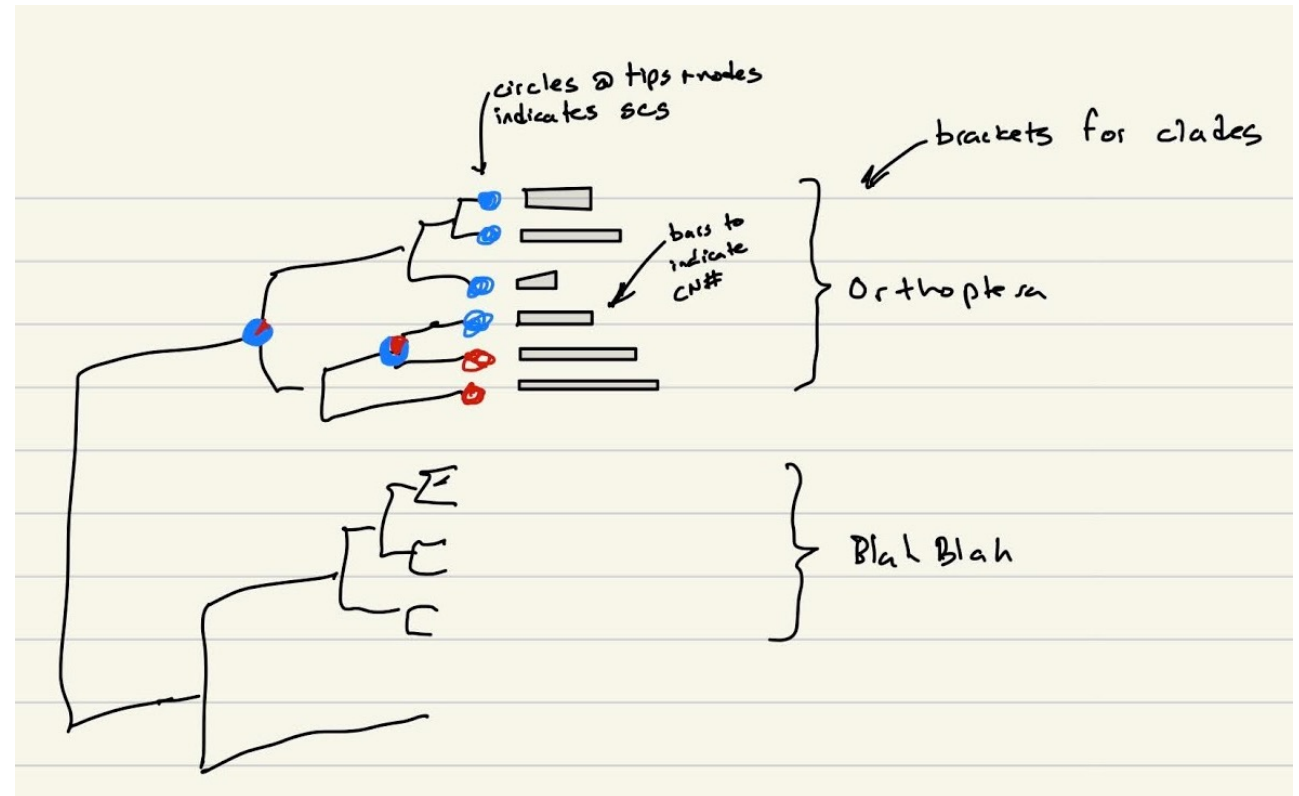 circles @ tips + nodes
indicates scs
brackets for clades
bars to
indicate
CN#
Orthoptera
Blah Blah